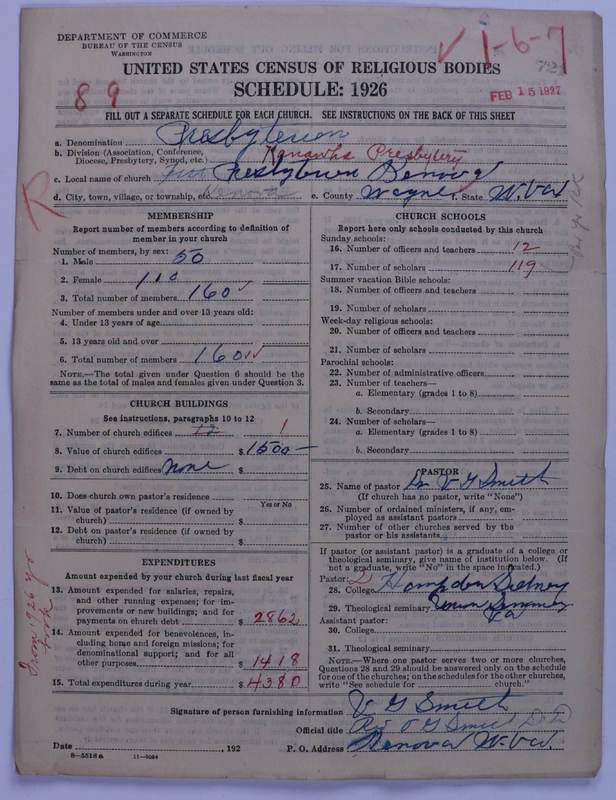 DEPARTMENT OF COMMERCE
BUREAU OF THE CENSUS
WASHINGTON
1-6-7
UNITED STATES CENSUS OF RELIGIOUS BODIES
SCHEDULE: 1926
89
FEB 15 1927
FILL OUT A SEPARATE SCHEDULE FOR EACH CHURCH. SEE INSTRUCTIONS ON THE BACK OF THIS SHEET
a. Denomination Presbyterian
b. Division (Association, Conference, Diocese, Presbytery, Synod, etc.) Kanawha Presbytery
c. Local name of church First Presbyterian Cenova
d. City, town, village, or township, etc. e. County Wayne f. State W. Va
MEMBERSHIP
Report number of members according to definition of member in your church
Number of members, by sex:
1. Male 50
2. Female 110
3. Total number of members 160
Number of members under and over 13 years old:
4. Under 13 years of age
5. 13 years old and over
6. Total number of members 160
NOTE.—The total given under Question 6 should be the same as the total of males and females given under Question 3.
CHURCH BUILDINGS
See instructions, paragraphs 10 to 12
7. Number of church edifices 12 1
8. Value of church edifices $ 1500
9. Debt on church edifices None
10. Does church own pastor's residence
Yes or No
11. Value of pastor's residence (if owned by church) $
12. Debt on pastor's residence (if owned by church) $
EXPENDITURES
Amount expended by your church during last fiscal year
13. Amount expended for salaries, repairs, and other running expenses; for improvements or new buildings; and for payments on church debt $ 2862
14. Amount expended for benevolences, including home and foreign missions; for denominational support; and for all other purposes $ 1418
15. Total expenditures during year $ 4380
From 1926 yr book
CHURCH SCHOOLS
Report here only schools conducted by this church
Sunday schools:
16. Number of officers and teachers 12
17. Number of scholars 119
Summer vacation Bible schools:
18. Number of officers and teachers
19. Number of scholars
Week-day religious schools:
20. Number of officers and teachers
21. Number of scholars
Parochial schools:
22. Number of administrative officers
23. Number of teachers—
a. Elementary (grades 1 to 8)
b. Secondary
24. Number of scholars—
a. Elementary (grades 1 to 8)
b. Secondary
PASTOR
25. Name of pastor Dr V G Smith
(If church has no pastor, write "None")
26. Number of ordained ministers, if any, employed as assistant pastors
27. Number of other churches served by the pastor or his assistants
If pastor (or assistant pastor) is a graduate of a college or theological seminary, give name of institution below. (If not a graduate, write "No" in the space indicated.)
Pastor:
28. College Hampden Sidney
29. Theological seminary Union Seminary Va
Assistant pastor:
30. College
31. Theological seminary
NOTE.—Where one pastor serves two or more churches, Questions 28 and 29 should be answered only on the schedule for one of the churches; on the schedules for the other churches, write "See schedule for church."
Signature of person furnishing information V G Smith
Official title Rev V G Smith D D
Date , 192 P. O. Address Cenova W. Va.
8-5518a 11-9034